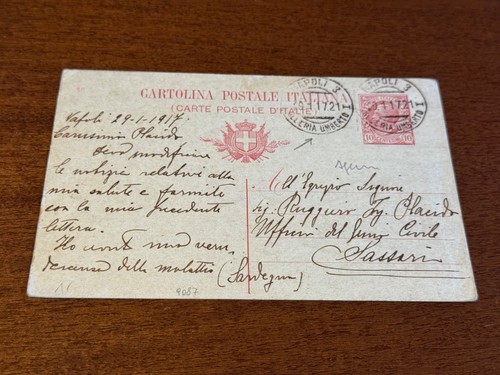 CARTOLINA POSTALE ITALIANA
(CARTE POSTALE D'ITALIE)
NAPOLI 3
GALLERIA UMBERTO I
NAPOLI 3
29.1.17.21
GALLERIA UMBERTO I
10 10
Napoli 29-1-1917.
Carissimo Placido
Devo modificare
le notizie relative alla
mia salute e fornite
con la mia precedente
lettera.
Ho avuto una vera
della malattia
All'Egregio Signore
Sig. Ruggiero Ing. Placido
Ufficio del Genio Civile
Sassari
(Sardegna)
9057